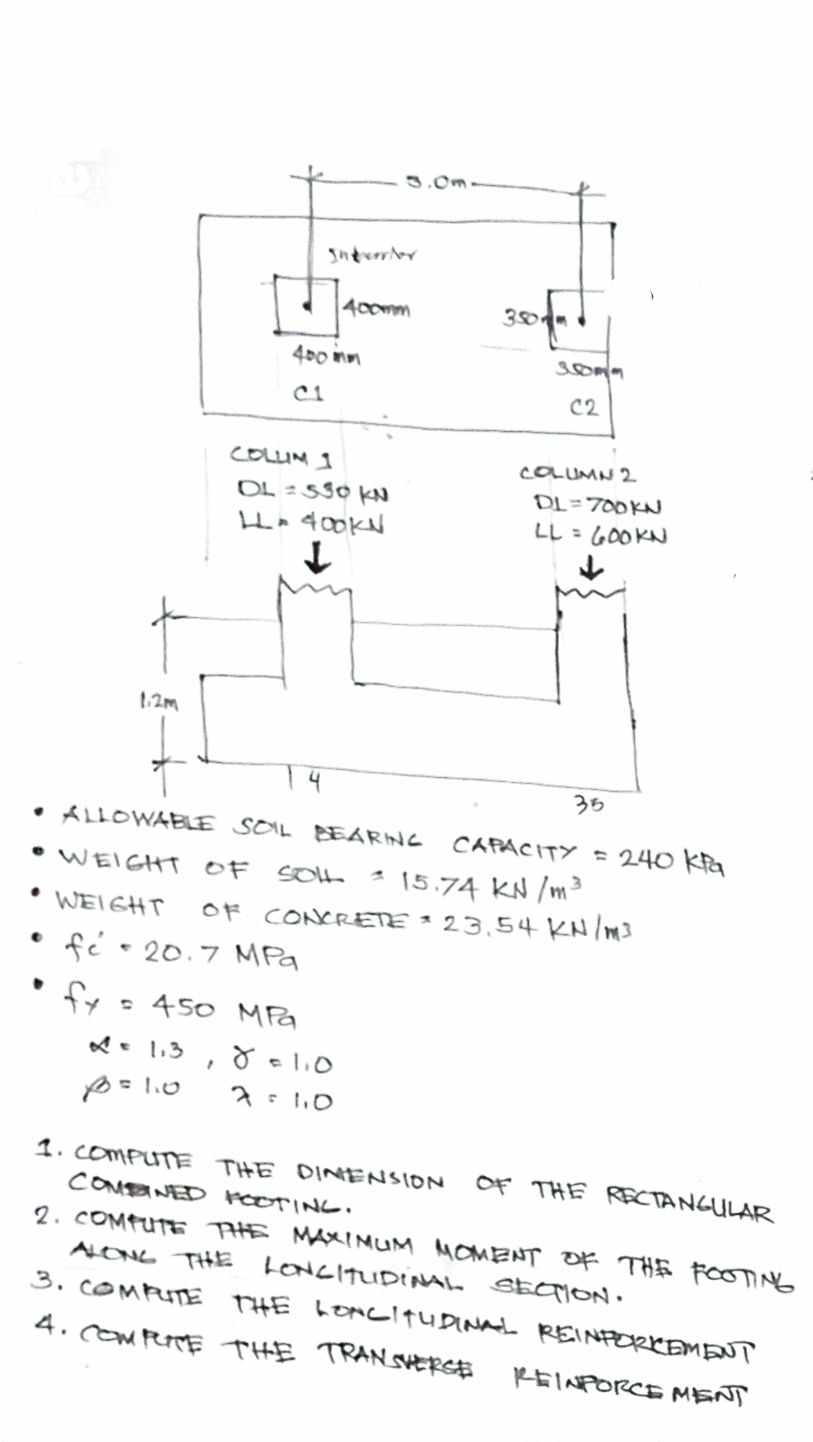 5.0m
Interior
400mm
400mm
C1
350mm
350mm
C2
COLUM 1
DL = 550 KN
LL = 400KN
COLUMN 2
DL = 700KN
LL = 600KN
1.2m
4
35
• ALLOWABLE SOIL BEARING CAPACITY = 240 KPa
• WEIGHT OF SOIL = 15.74 KN/m³
• WEIGHT OF CONCRETE = 23.54 KN/m³
• fc' = 20.7 MPa
• fy = 450 MPa
α = 1.3 , γ = 1.0
β = 1.0 λ = 1.0
1. COMPUTE THE DIMENSION OF THE RECTANGULAR
COMBINED FOOTING.
2. COMPUTE THE MAXIMUM MOMENT OF THE FOOTING
ALONG THE LONGITUDINAL SECTION.
3. COMPUTE THE LONGITUDINAL REINFORCEMENT
4. COMPUTE THE TRANSVERSE REINFORCEMENT